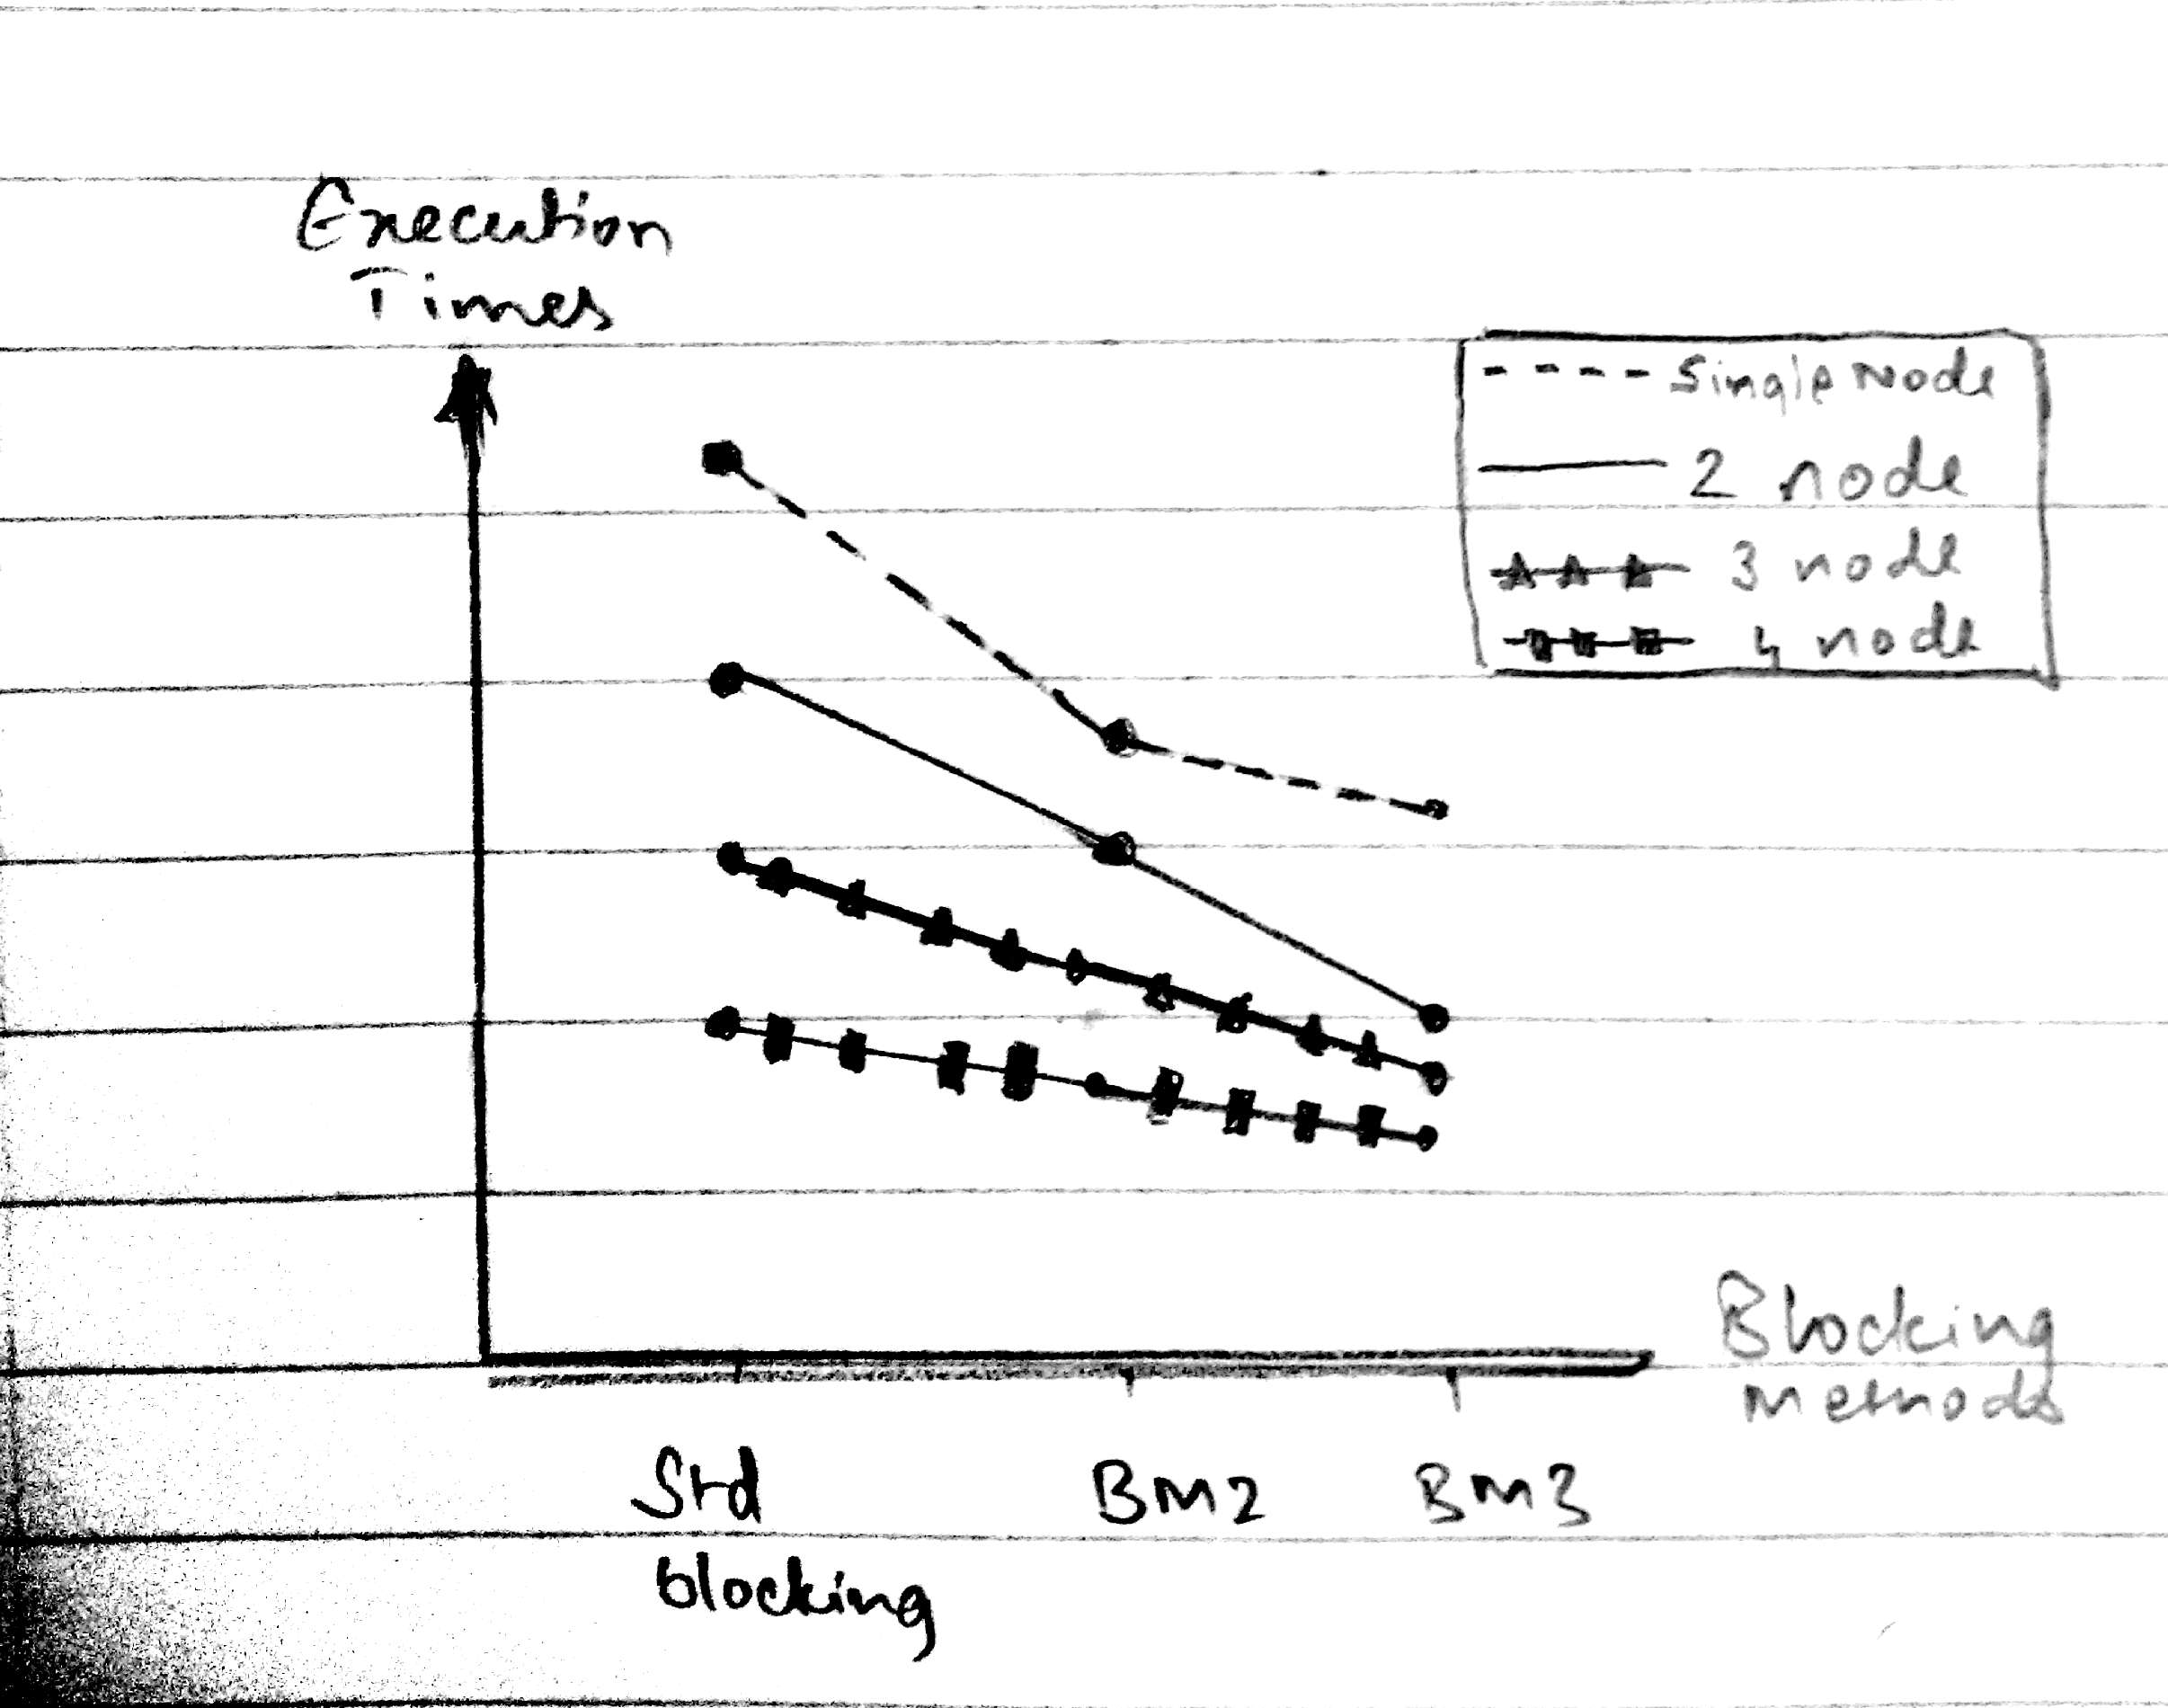 Execution
Times
Single Node
2 node
3 node
4 node
Blocking
Methods
Std
blocking
BM2
BM3